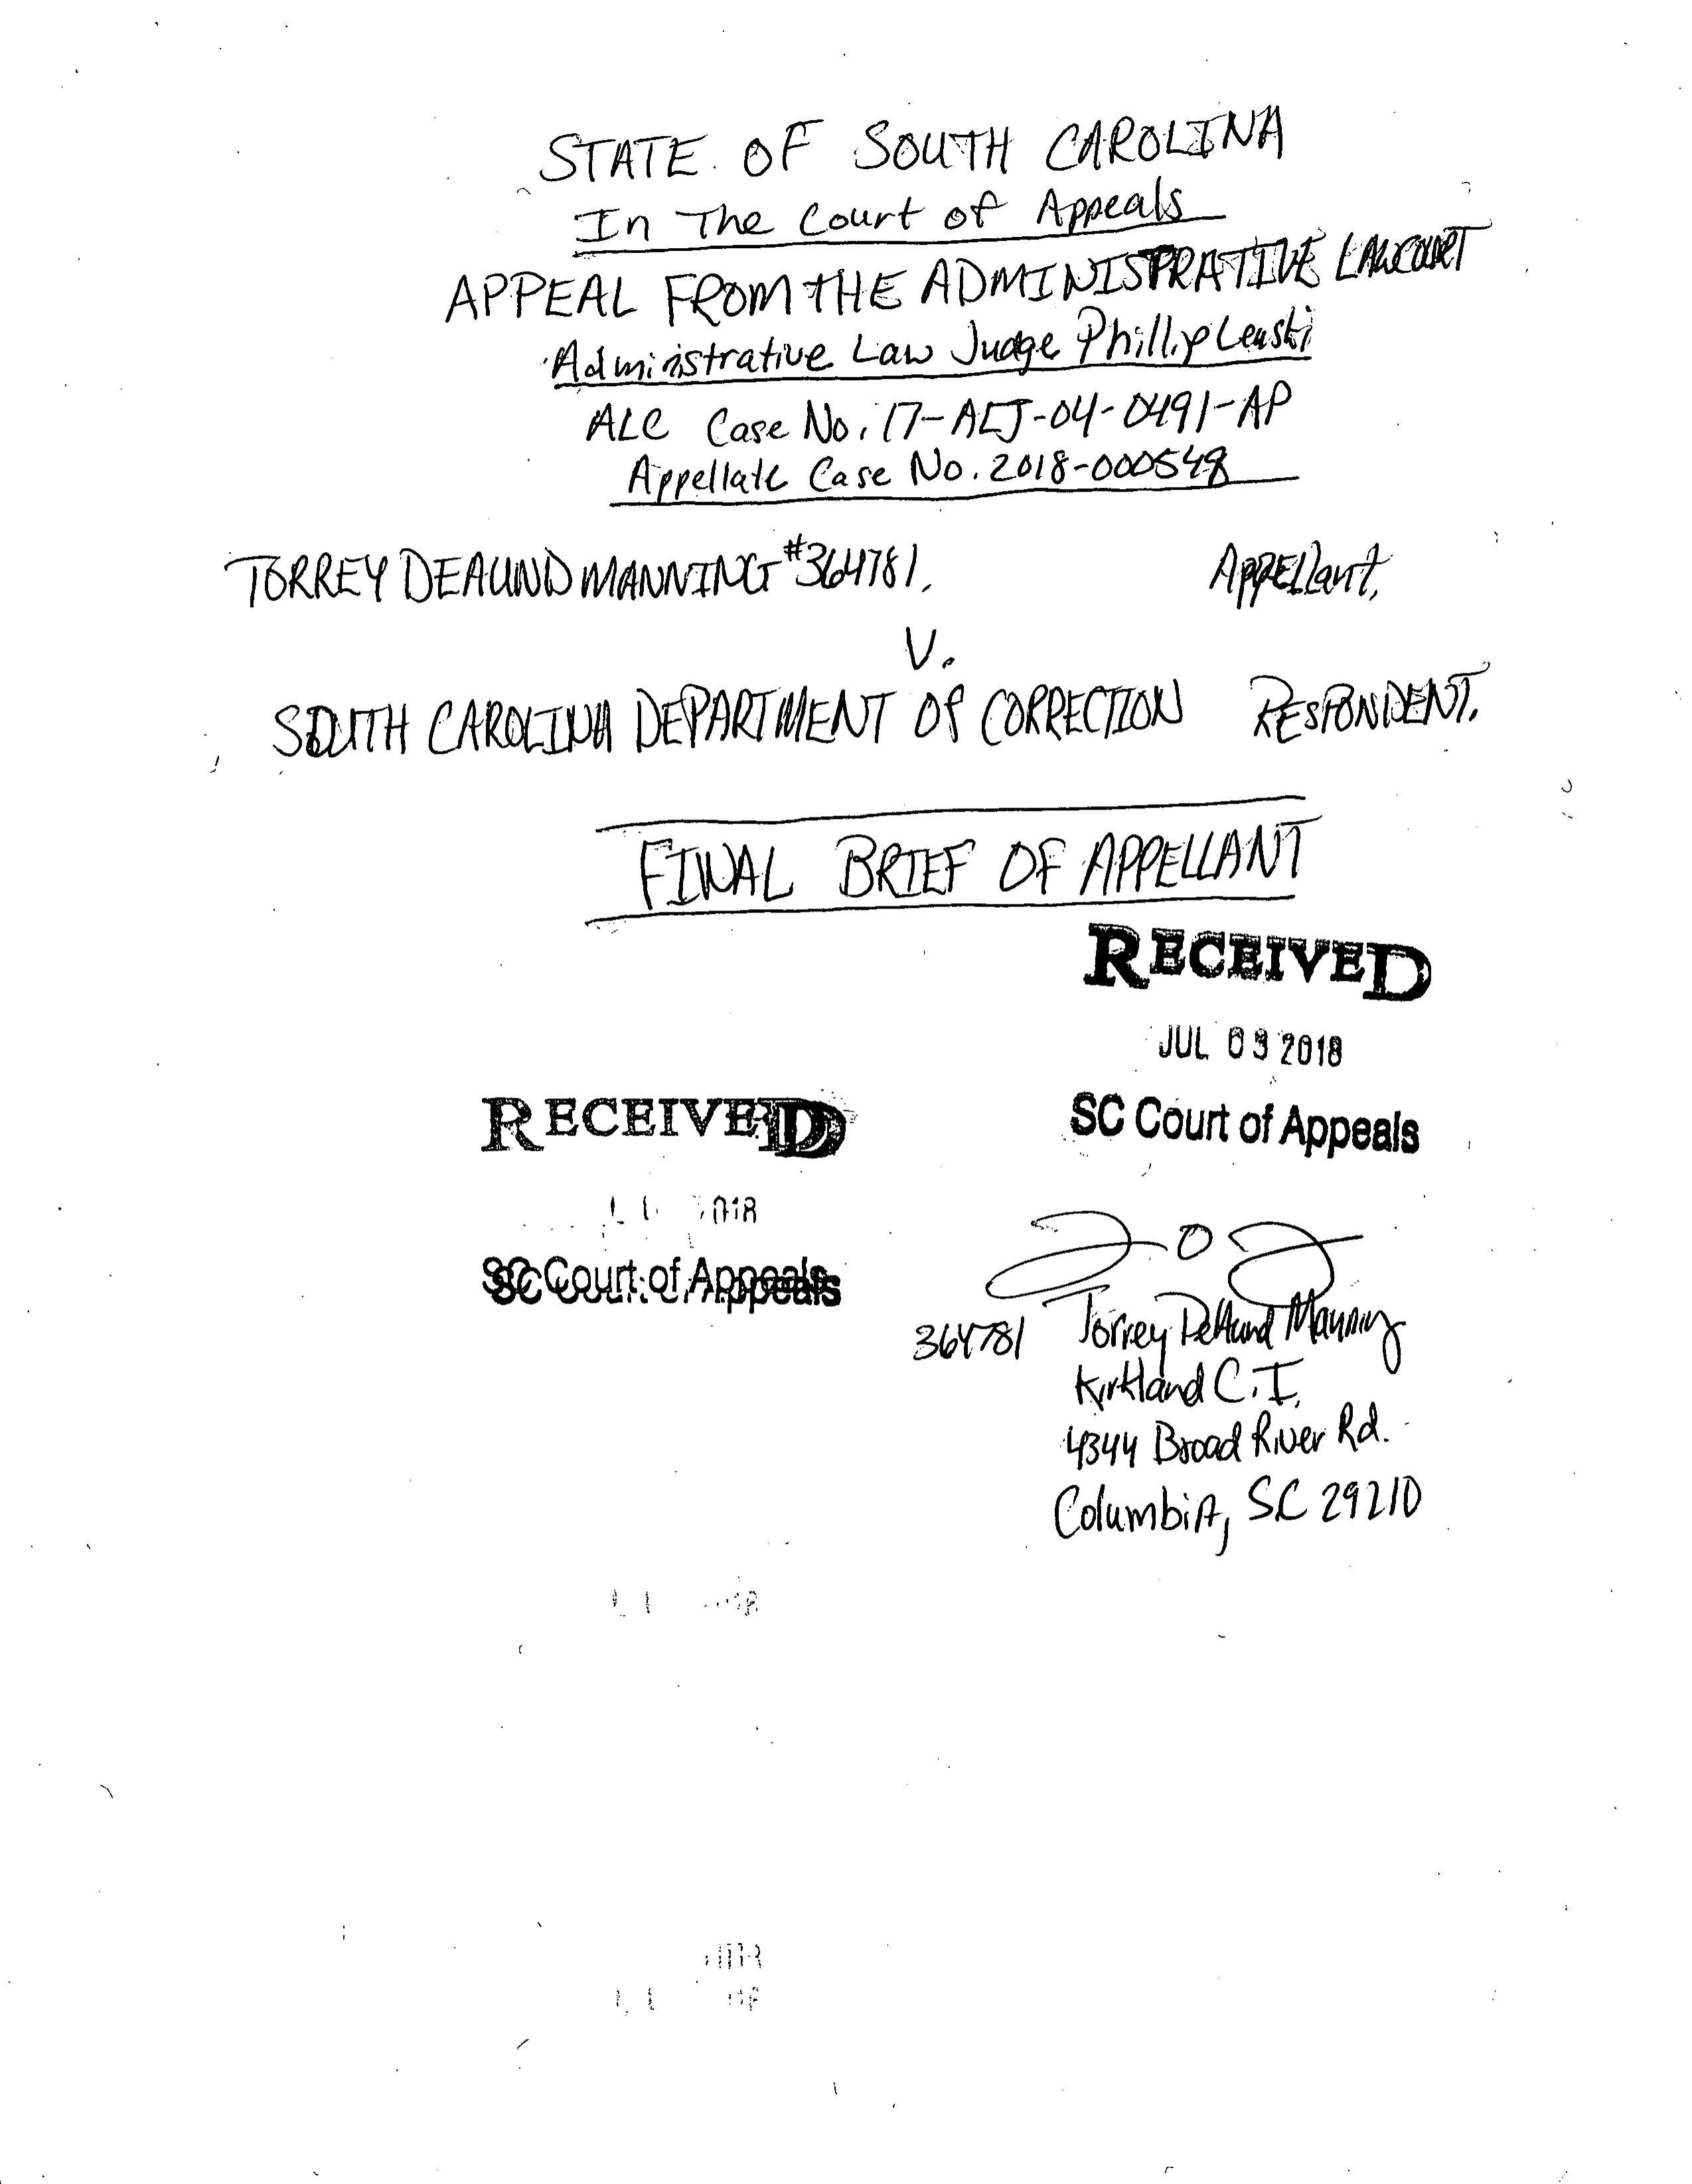 STATE OF SOUTH CAROLINA
In The Court of Appeals
APPEAL FROM THE ADMINISTRATIVE LAW COURT
Administrative Law Judge Phillip Lenski
ALC Case No. 17-ALJ-04-0491-AP
Appellate Case No. 2018-000548
TORREY DEAUND MANNING #364781, APPELLant,
V.
SOUTH CAROLINA DEPARTMENT OF CORRECTION RESPONDENT.
FINAL BRIEF OF APPELLANT
RECEIVED
JUL 03 2018
SC Court of Appeals
RECEIVED
SC Court of Appeals
364781 Torrey DeAund Manning
Kirkland C.I.
4344 Broad River Rd.
ColumbiA, SC 29210